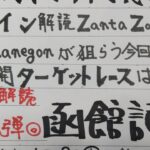 イン解読Zanta Z
anegonが狙らう今回
開ターゲットレースは
解読
弾◎函館記